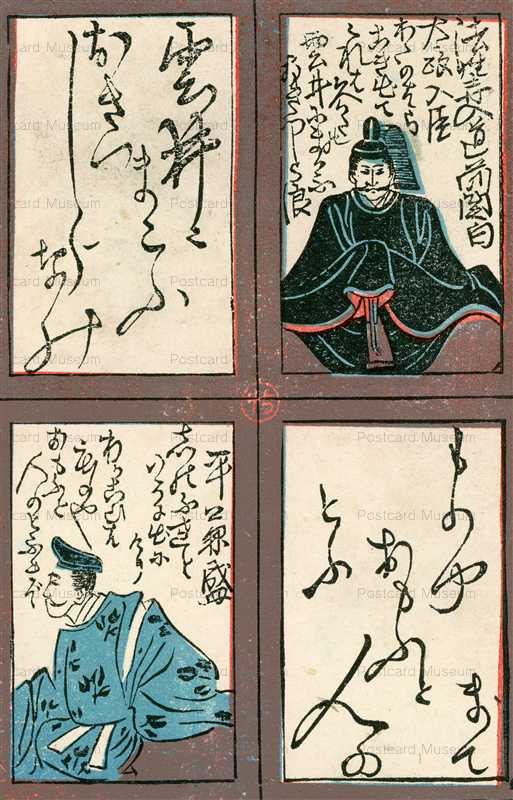 法性寺入道前関白
太政大臣
わたのはら
こき出て
みれは久かたの
雲井にまかふ
おきつしら浪
雲井に
まかふ
おきつ
しら
なみ
平兼盛
しのふれと
いろに出にけり
わかこひは
ものや
おもふと
人のとふまて
ものや
おもふと
人の
とふ
まて
Postcard Museum